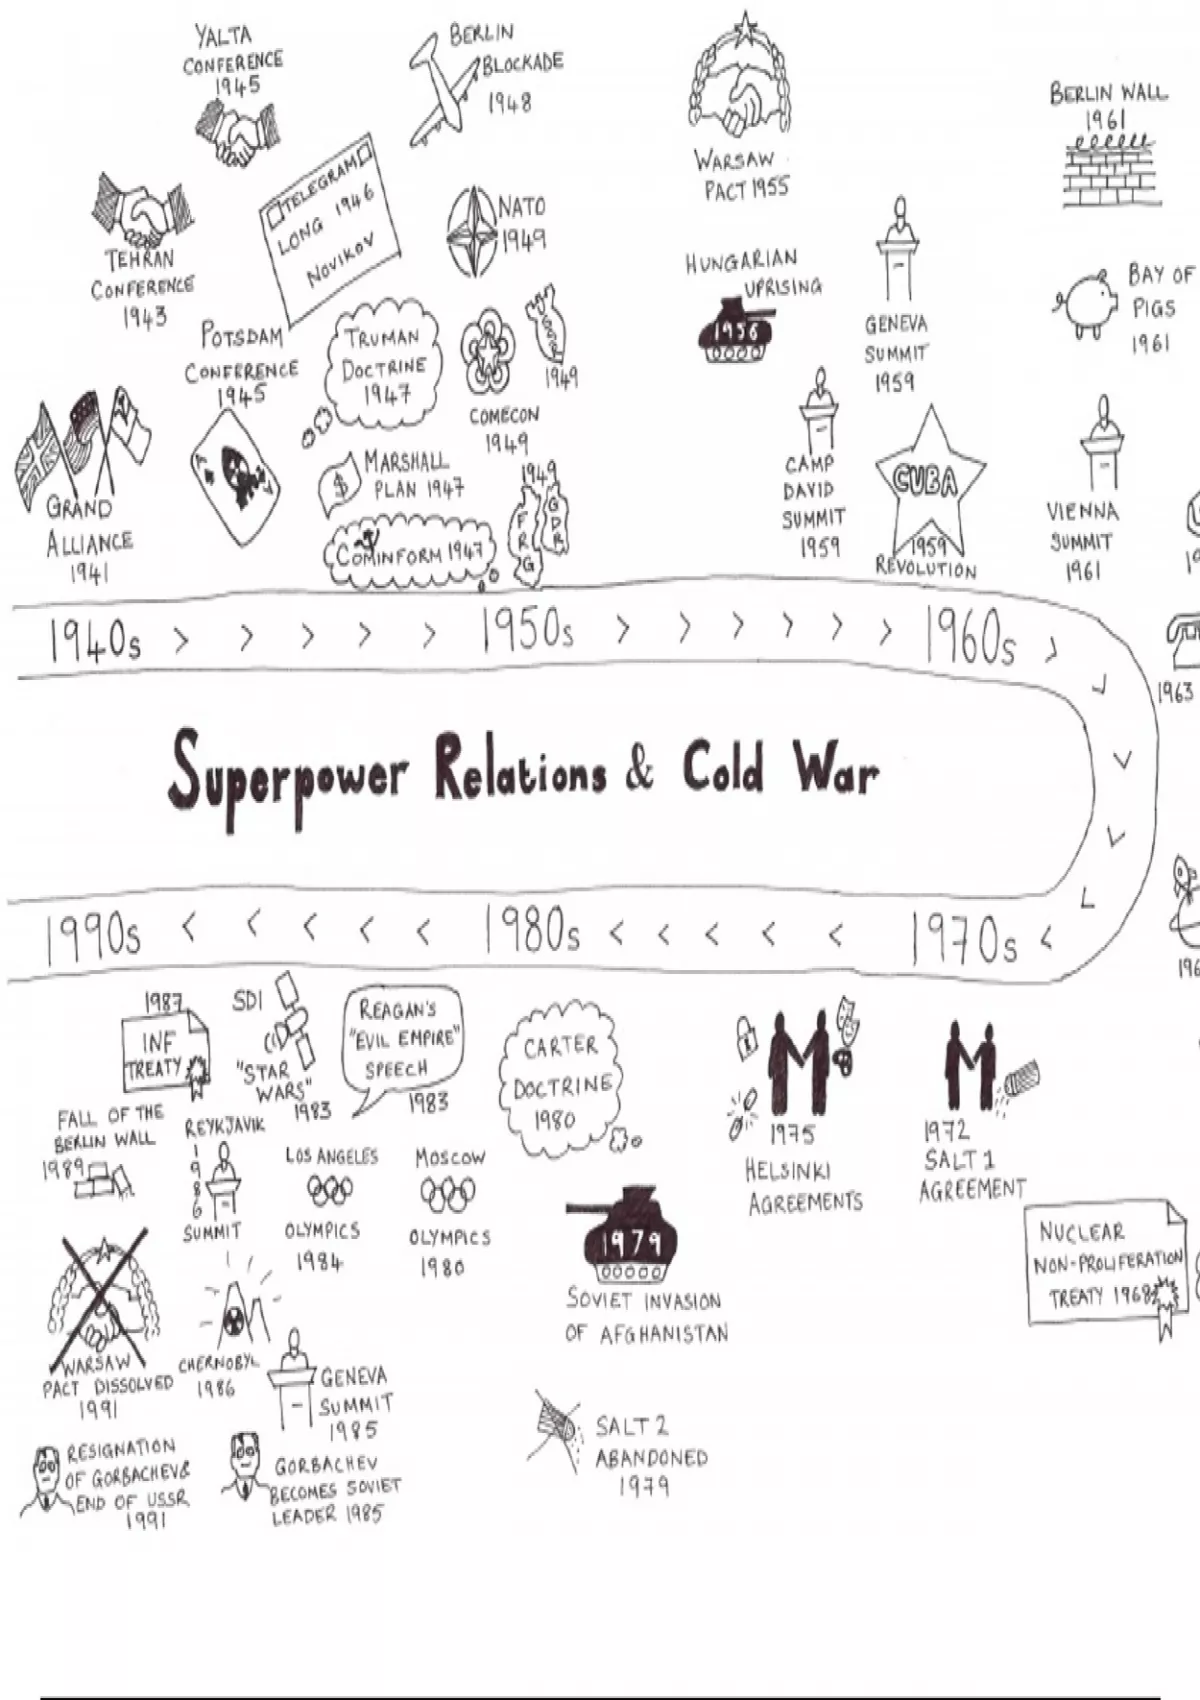 YALTA
CONFERENCE
1945
BERLIN
BLOCKADE
1948
WARSAW
PACT 1955
BERLIN WALL
1961
TEHRAN
CONFERENCE
1943
TELEGRAM
LONG 1946
NOVIKOV
NATO
1949
HUNGARIAN
UPRISING
1956
GENEVA
SUMMIT
1959
BAY OF
PIGS
1961
POTSDAM
CONFERENCE
1945
TRUMAN
DOCTRINE
1947
COMECON
1949
1949
GRAND
ALLIANCE
1941
MARSHALL
PLAN 1947
$
COMINFORM 1947
1949
FRG
GDR
CAMP
DAVID
SUMMIT
1959
CUBA
1959
REVOLUTION
VIENNA
SUMMIT
1961
1940s > > > > > 1950s > > > > > > 1960s >
1963
Superpower Relations & Cold War
1990s < < < < < 1980s < < < < < 1970s <
196
1987
INF
TREATY
SDI
"STAR
WARS"
1983
REAGAN'S
"EVIL EMPIRE"
SPEECH
1983
CARTER
DOCTRINE
1980
1975
HELSINKI
AGREEMENTS
1972
SALT 1
AGREEMENT
FALL OF THE
BERLIN WALL
1989
REYKJAVIK
1986
SUMMIT
LOS ANGELES
OLYMPICS
1984
MOSCOW
OLYMPICS
1980
1979
SOVIET INVASION
OF AFGHANISTAN
NUCLEAR
NON-PROLIFERATION
TREATY 1968
WARSAW
PACT DISSOLVED
1991
CHERNOBYL
1986
GENEVA
SUMMIT
1985
SALT 2
ABANDONED
1979
RESIGNATION
OF GORBACHEV &
END OF USSR
1991
GORBACHEV
BECOMES SOVIET
LEADER 1985